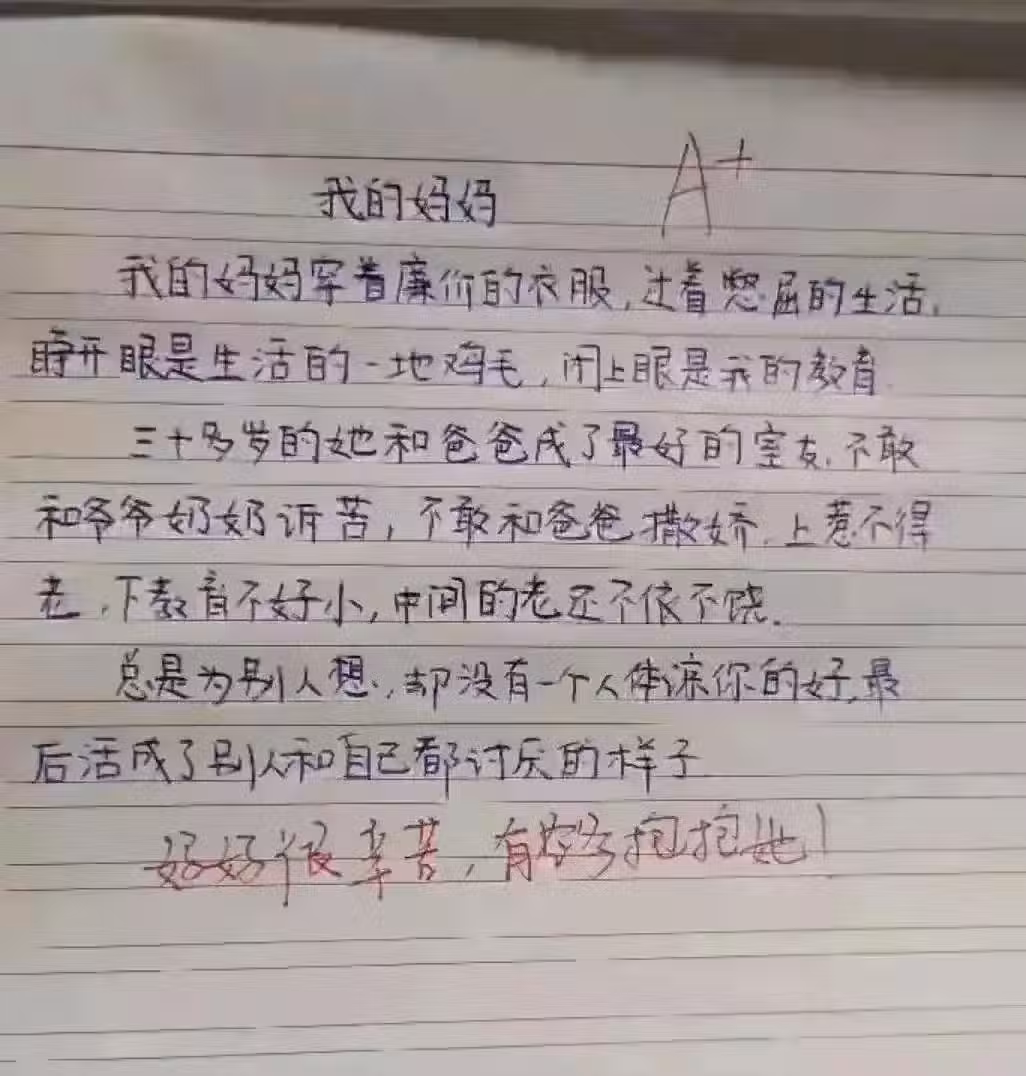 我的妈妈 A+
我的妈妈穿着廉价的衣服,过着憋屈的生活,
睁开眼是生活的一地鸡毛,闭上眼是我的教育.
三十多岁的她和爸爸成了最好的室友.不敢
和爷爷奶奶诉苦,不敢和爸爸撒娇.上惹不得
老,下教育不好小,中间的老还不依不饶.
总是为别人想,却没有一个人体谅你的好,最
后活成了别人和自己都讨厌的样子
妈妈很辛苦,有空多抱抱她!